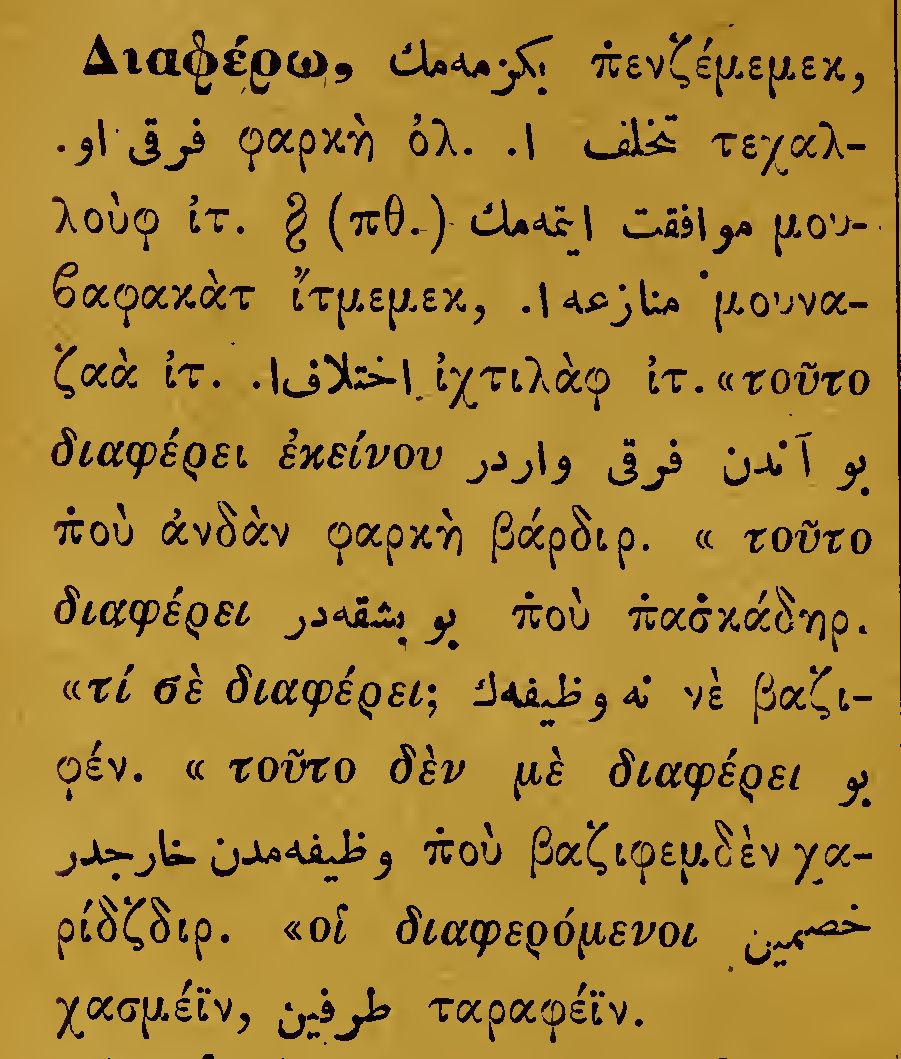 Διαφέρω, بكزه‌مه‌مك π̇ενζέμεμεκ,
فرقى او. φαρκὴ ὀλ. تخلف ا. τεχαλ-
λοὺφ ἰτ. § (πθ.) موافقت ايتمه‌مك μου-
βαφακὰτ ἴτμεμεκ, منازعه ا. μουνα-
ζαὰ ἰτ. اختلاف ا. ἰχτιλὰφ ἰτ. «τοῦτο
διαφέρει ἐκείνου بو آندن فرقى واردر
π̇οὺ ἀνδὰν φαρκὴ βάρδιρ. « τοῦτο
διαφέρει بو بشقه‌در π̇οὺ π̇ασ̇κάδηρ.
«τί σὲ διαφέρει; نه وظيفه‌ك νὲ βαζι-
φέν. « τοῦτο δὲν μὲ διαφέρει بو
وظيفه‌مدن خارجدر π̇οὺ βαζιφεμδὲν χα-
ρίδζδιρ. «οἱ διαφερόμενοι خصمين
χασμέϊν, طرفين ταραφέϊν.